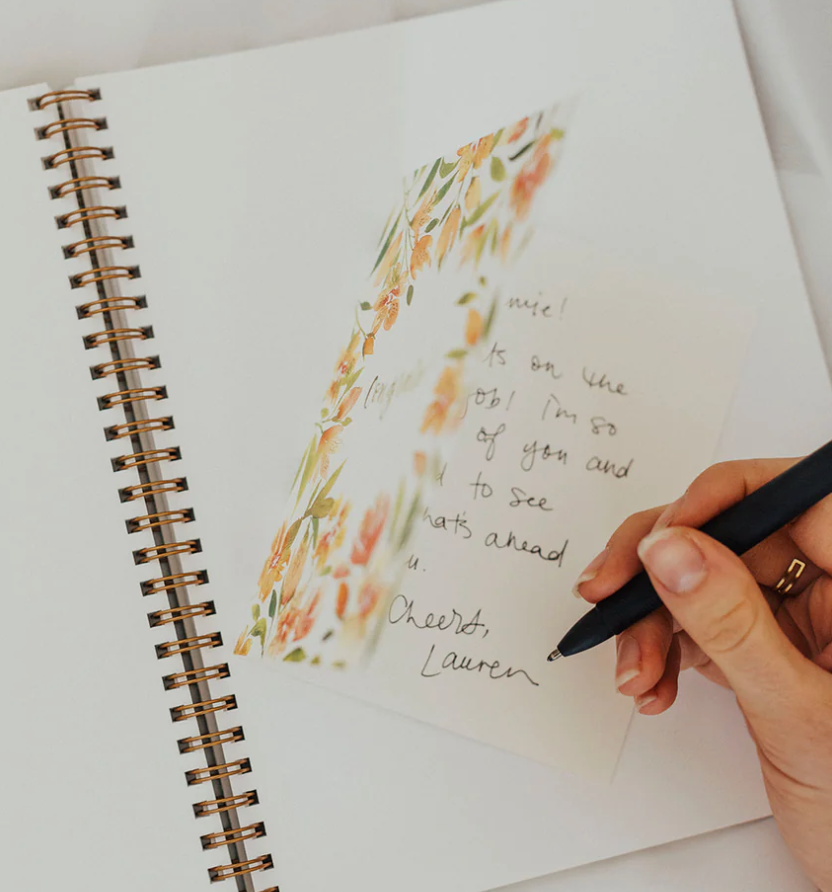 mie!
ts on the
job! i'm so
of you and
d to see
hat's ahead
u.
Cheers,
Lauren